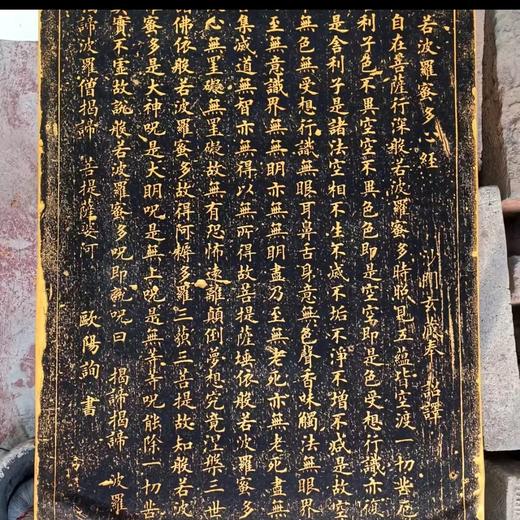 若波羅蜜多心經 沙門玄奘奉 詔譯
自在菩薩行深般若波羅蜜多時照見五蘊皆空渡一切苦厄
利子色不異空空不異色色即是空空即是色受想行識亦復
是舍利子是諸法空相不生不滅不垢不淨不增不減是故空
中無色無受想行識無眼耳鼻舌身意無色聲香味觸法無眼界
至無意識界無無明亦無無明盡乃至無老死亦無老死盡無
苦集滅道無智亦無得以無所得故菩提薩埵依般若波羅蜜多
心無罣礙無罣礙故無有恐怖遠離顛倒夢想究竟涅槃三世
諸佛依般若波羅蜜多故得阿耨多羅三藐三菩提故知般若波
羅蜜多是大神呪是大明呪是無上呪是無等等呪能除一切苦
真實不虛故說般若波羅蜜多呪即說呪曰 揭諦揭諦 波羅
揭諦波羅僧揭諦 菩提薩婆訶 歐陽詢書